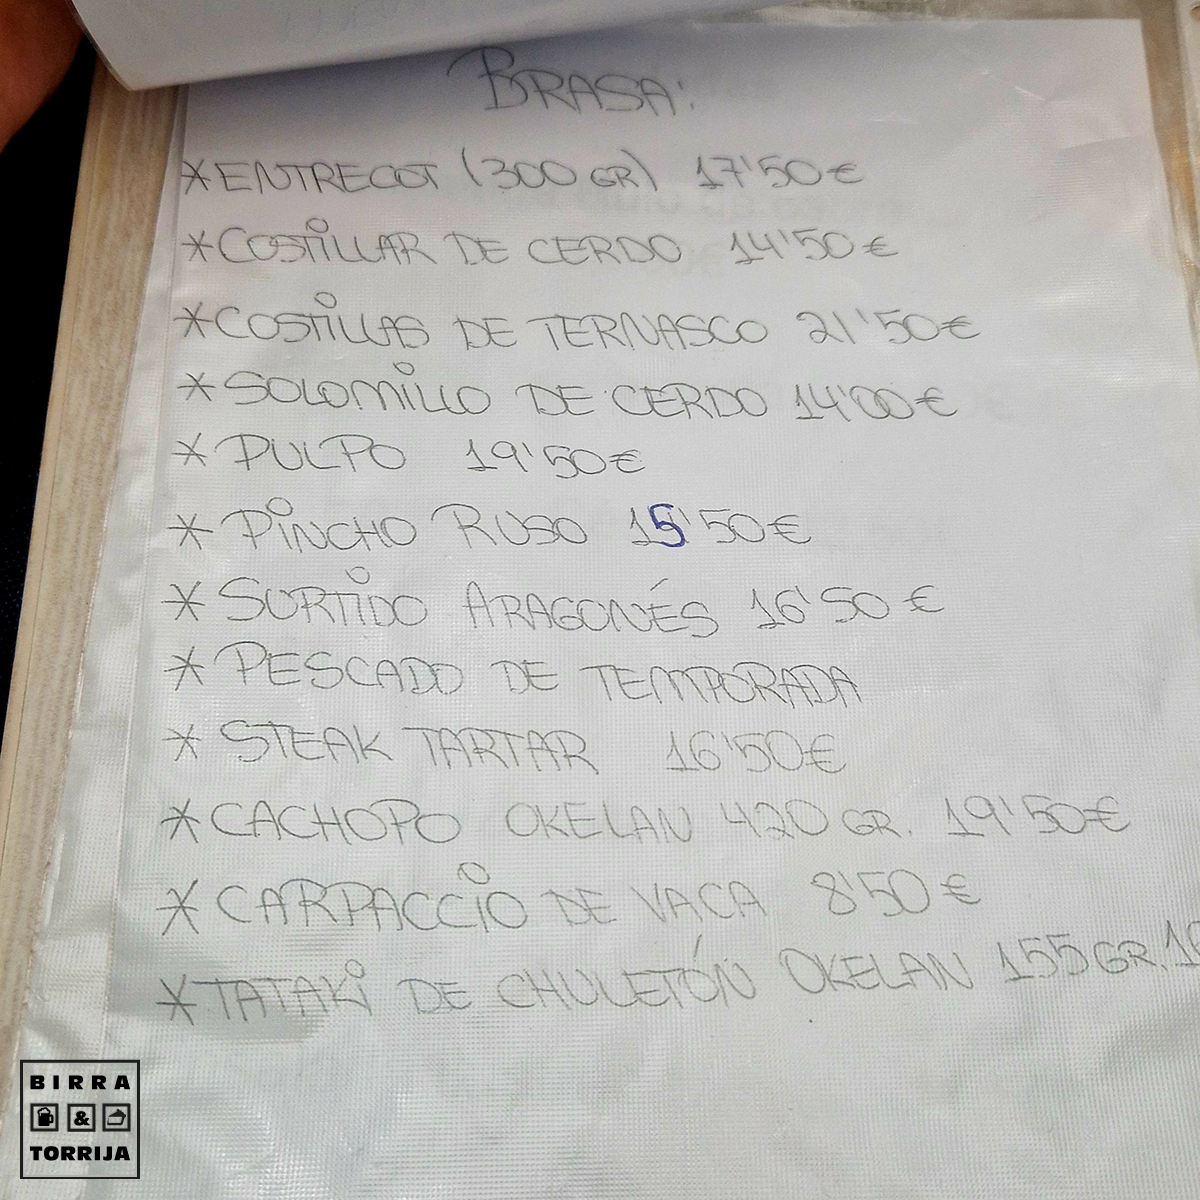 BRASA:
*ENTRECOT (300 GR) 17'50€
*COSTILLAR DE CERDO 14'50€
*COSTILLAS DE TERNASCO 21'50€
*SOLOMILLO DE CERDO 14'00€
* PULPO 19'50€
* PINCHO RUSO 15'50€
* SURTIDO ARAGONÉS 16'50€
* PESCADO DE TEMPORADA
* STEAK TARTAR 16'50€
*CACHOPO OKELAN 420 GR. 19'50€
*CARPACCIO DE VACA 8'50€
*TATAKI DE CHULETÓN OKELAN 155GR.
BIRRA
&
TORRIJA